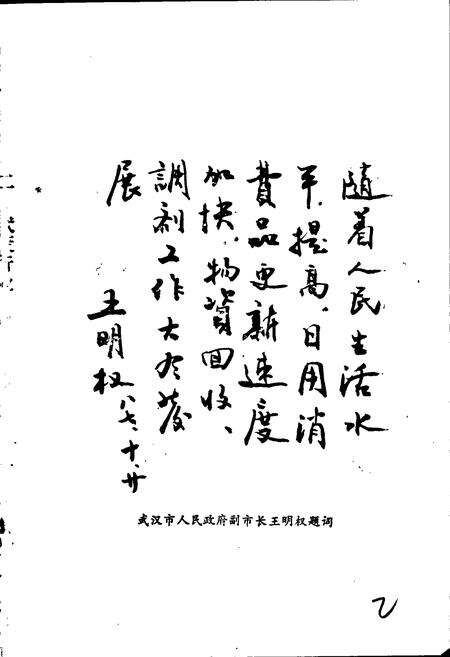 随着人民生活水
平提高、日用消
費品更新速度
加快、物資回收、
調剂工作大有發
展
王明权
八七、十、廿
武汉市人民政府副市长王明权题词
乙